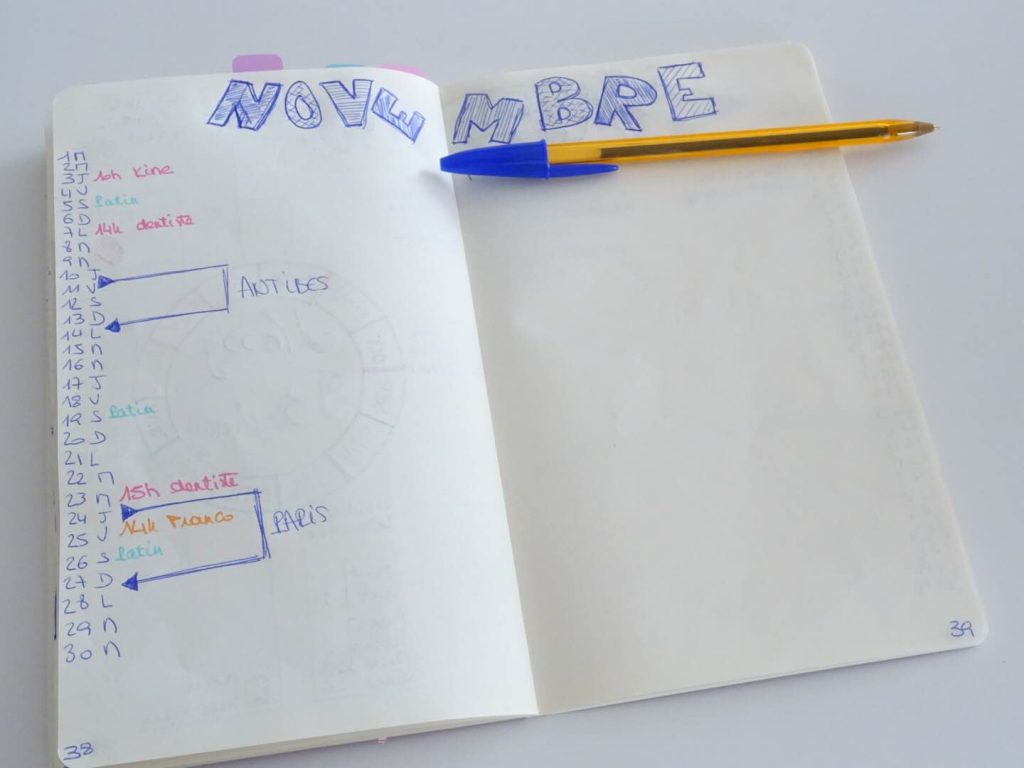 NOVEMBRE
1 M
2 M
3 J 10h Kine
4 V
5 S Patin
6 D
7 L 14h dentiste
8 M
9 M
10 J
11 V
12 S
ANTIBES
13 D
14 L
15 M
16 M
17 J
18 V
19 S Patin
20 D
21 L
22 M
23 M 15h dentiste
24 J
25 V 14h Franco
PARIS
26 S Patin
27 D
28 L
29 M
30 M
38
39